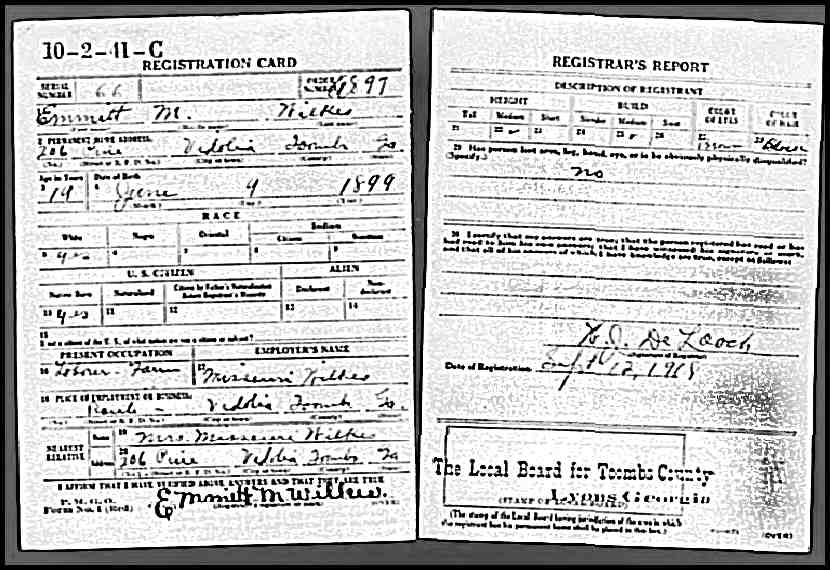 10-2-41-C
REGISTRATION CARD
SERIAL NUMBER 66
ORDER NUMBER
Emmitt M. Wilkes
2 PERMANENT HOME ADDRESS
206 Pine Vidalia Toombs Ga
(No.) (Street or R. F. D. No.) (City or town) (County)
Age in Years Date of Birth
3 19 4 June 9 1899
(Month) (Day) (Year)
RACE
White Negro Oriental Indian
Citizen Noncitizen
5 yes 6 7 8 9
U. S. CITIZEN ALIEN
Native Born Naturalized Citizen by Father's Naturalization Before Registrant's Majority Declarant Non-declarant
10 yes 11 12 13 14
15
If not a citizen of the U. S., of what nation are you a citizen or subject?
PRESENT OCCUPATION EMPLOYER'S NAME
16 Laborer - Farm 17 Missouri Wilkes
18 PLACE OF EMPLOYMENT OR BUSINESS:
Route - Vidalia Toombs Ga.
(No.) (Street or R. F. D. No.) (City or town) (County)
NEAREST RELATIVE
Name 19 Mrs. Missouri Wilkes
Address 20 206 Pine Vidalia Toombs Ga
(No.) (Street or R. F. D. No.) (City or town) (County)
I AFFIRM THAT I HAVE VERIFIED ABOVE ANSWERS AND THAT THEY ARE TRUE
P. M. G. O.
Form No. 1 (Red)
Emmitt M Wilkes.
(OVER)
REGISTRAR'S REPORT
DESCRIPTION OF REGISTRANT
HEIGHT BUILD COLOR OF EYES COLOR OF HAIR
Tall Medium Short Slender Medium Stout
21 22 23 24 25 26 27 Brown 28
29 Has person lost arm, leg, hand, eye, or is he obviously physically disqualified?
(Specify.)
no
30 I certify that my answers are true; that the person registered has read or has
had read to him his own answers; that I have witnessed his signature or mark,
and that all of his answers of which I have knowledge are true, except as follows:
De Loach
(Signature of Registrar)
Date of Registration Sept 12, 1918
The Local Board for Toombs County
Lyons Georgia
(STAMP OF LOCAL BOARD)
(The stamp of the Local Board having jurisdiction of the area in which
the registrant has his permanent home shall be placed in this box.)
(OVER)